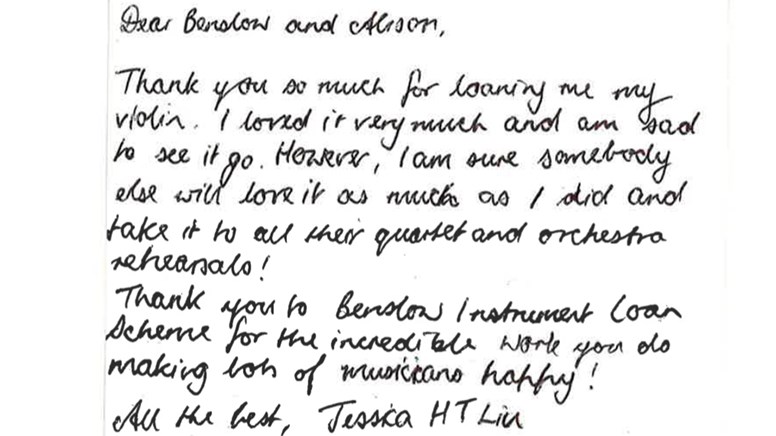 Dear Benslow and Alison,
Thank you so much for loaning me my
violin. I loved it very much and am sad
to see it go. However, I am sure somebody
else will love it as much as I did and
take it to all their quartet and orchestra
rehearsals!
Thank you to Benslow Instrument Loan
Scheme for the incredible work you do
making lots of musicians happy!
All the best, Jessica HT Liu